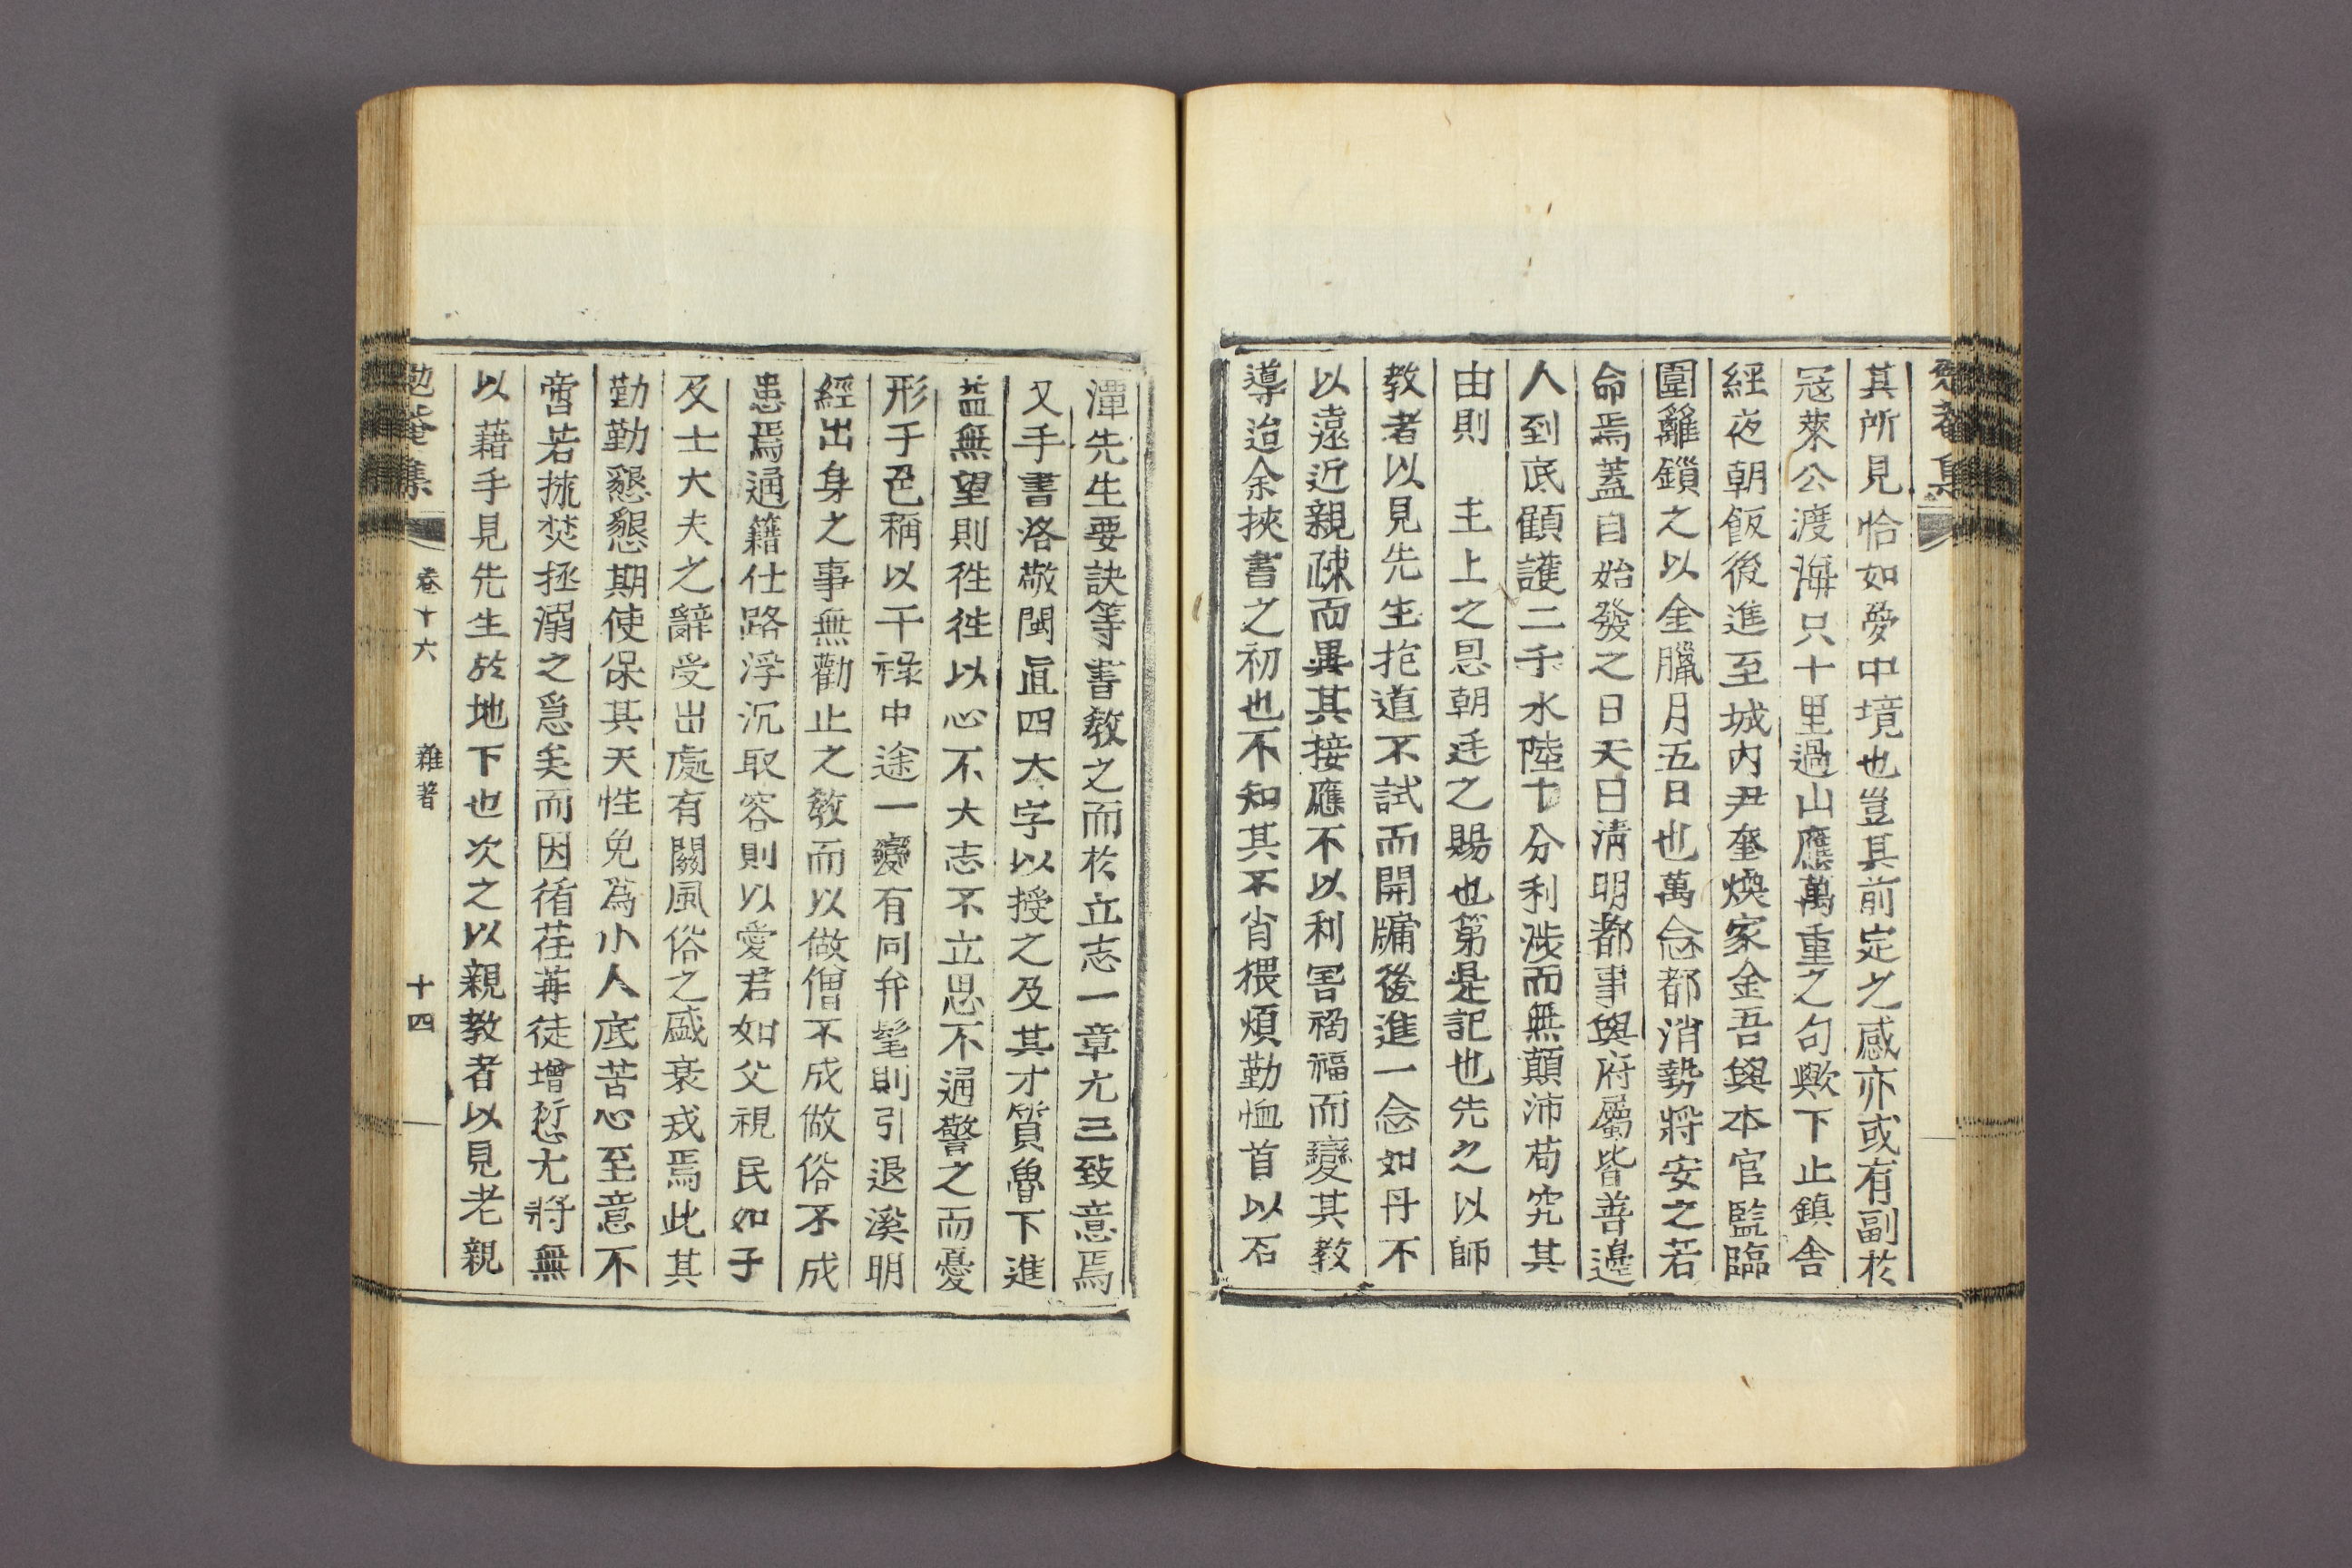 勉菴集
其所見恰如夢中境也豈其前定之感亦或有副於
冦萊公渡海只十里過山應萬重之句歟下止鎭舍
經夜朝飯後進至城內尹奎煥家金吾與本官監臨
圍籬鎖之以金臘月五日也萬念都消勢將安之若
命焉蓋自始發之日天日淸明都事與府屬皆善邊
人到底顧護二千水陸十分利涉而無顚沛苟究其
由則　主上之恩朝廷之賜也第是記也先之以師
教者以見先生抱道不試而開牖後進一念如丹不
以遠近親疎而異其接應不以利害禍福而變其教
導迨余挾書之初也不知其不肖猥煩勤恤首以石
潭先生要訣等書敎之而於立志一章尤三致意焉
又手書洛敬閩直四大字以授之及其才質魯下進
益無望則徃徃以心不大志不立思不通警之而憂
形于色稱以干祿中途一變有同弁髦則引退溪明
經出身之事無勸止之敎而以做僧不成做俗不成
患焉通籍仕路浮沉取容則以愛君如父視民如子
及士大夫之辭受出處有關風俗之盛衰戒焉此其
勤勤懇懇期使保其天性免爲小人底苦心至意不
啻若捄焚拯溺之急矣而因循荏苒徒增愆尤將無
以藉手見先生於地下也次之以親教者以見老親
勉菴集　卷十六　雜著　十四